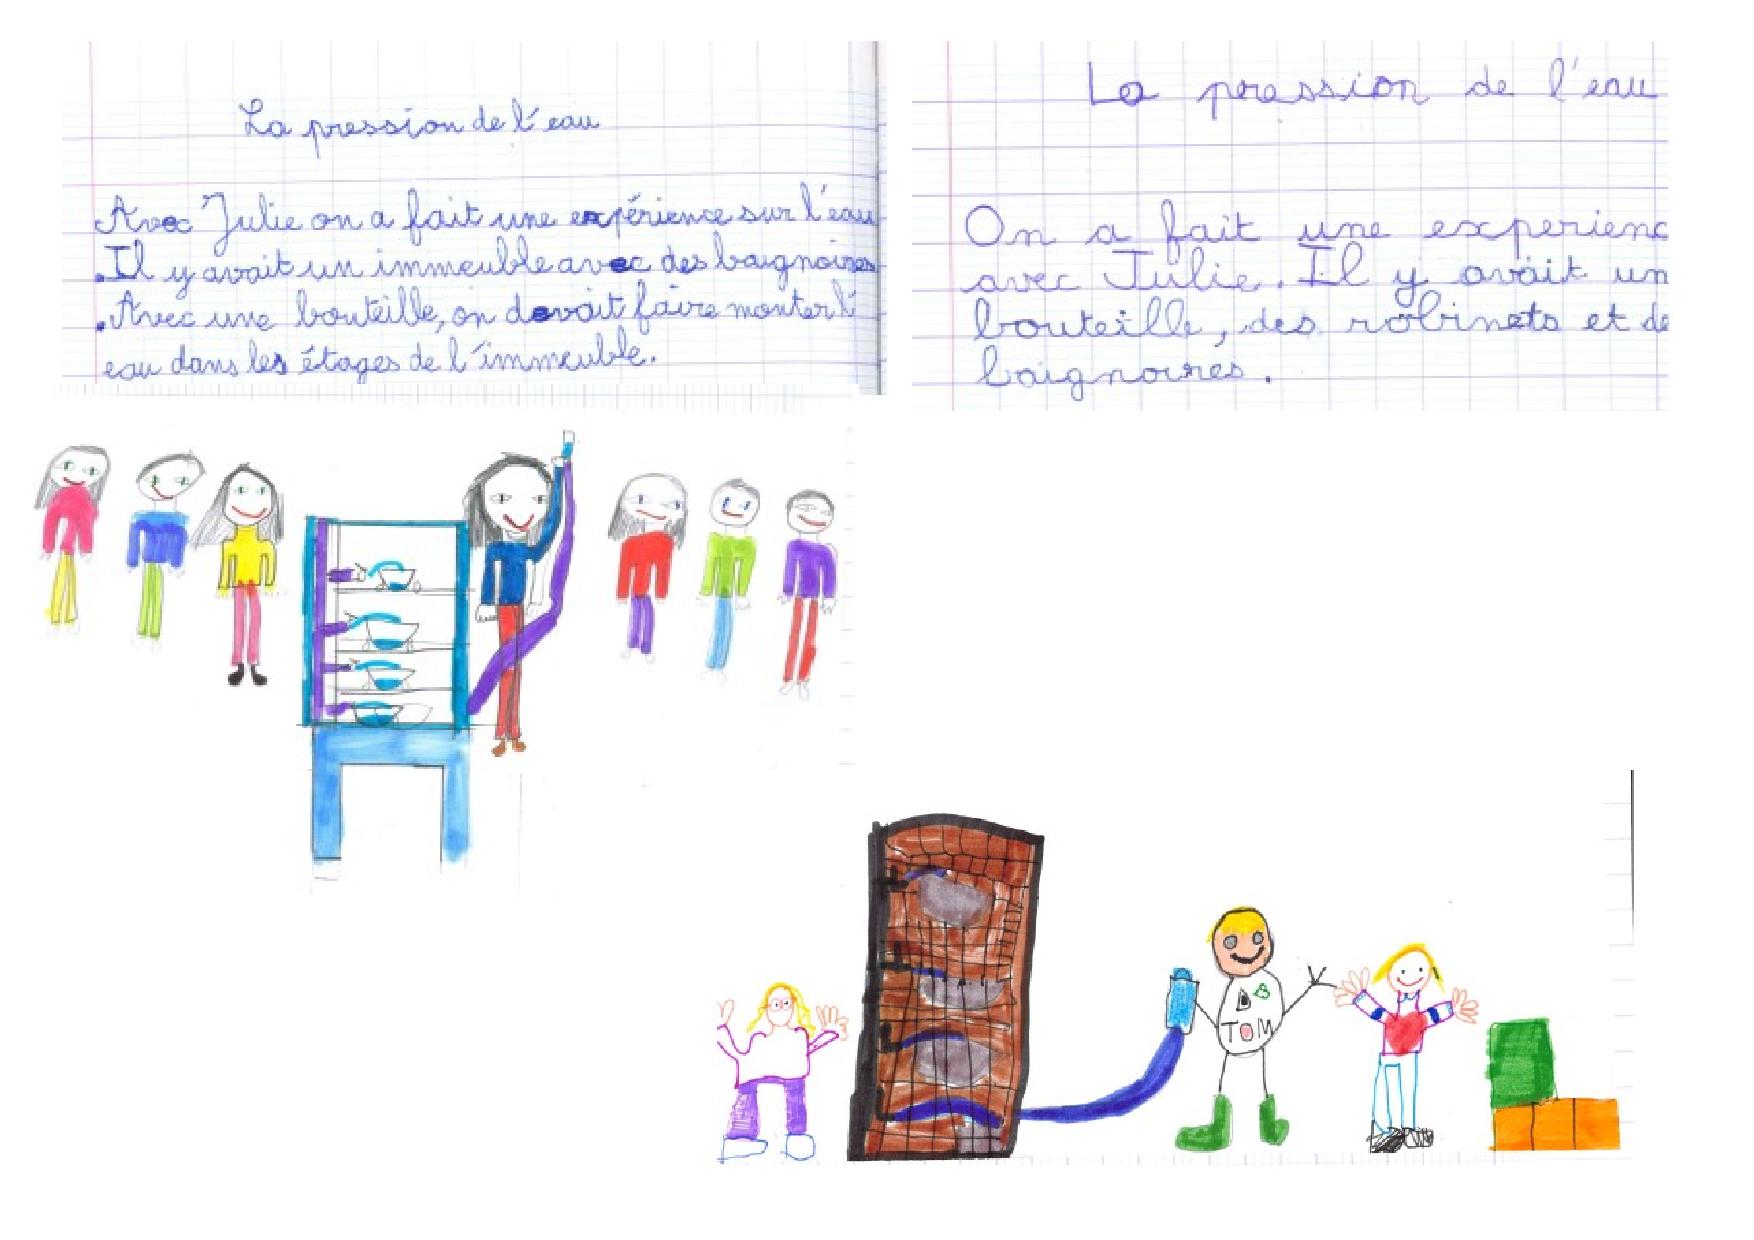 La pression de l'eau
Avec Julie on a fait une expérience sur l'eau
. Il y avait un immeuble avec des baignoires
. Avec une bouteille, on devait faire monter l'
eau dans les étages de l'immeuble.
La pression de l'eau
On a fait une experienc
avec Julie. Il y avait un
bouteille, des robinets et de
baignoires.
TOM